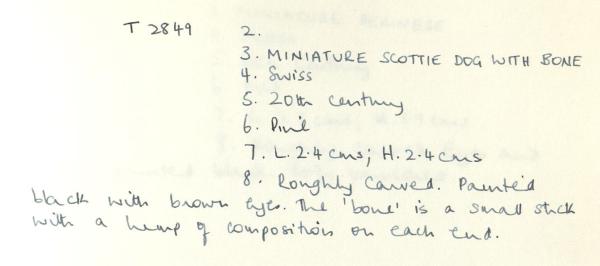 T 2849 2.
3. MINIATURE SCOTTIE DOG WITH BONE
4. Swiss
5. 20th century
6. Pine
7. L. 2.4 cms; H. 2.4 cms
8. Roughly carved. Painted
black with brown eyes. The 'bone' is a small stick
with a lump of composition on each end.